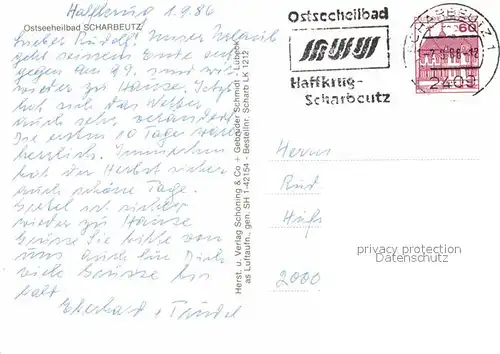 Haffkrug 1.9.86
Ostseeheilbad SCHARBEUTZ
Lieber Rudolf! Unser Urlaub
geht seinem Ende
gegen Am 9.9. sind wir
wieder zu Hause.
hat sich das Wetter
auch sehr verändert
Die ersten 10 Tage war
herrlich. Immerhin
hat der Herbst sicher
auch schöne Tage.
ist sicher
wieder zu Hause
Grüsse Sie bitte von
uns Auch für Dich
viele Grüsse bis
bald
Eberhard + Trudel
Herst. u. Verlag Schöning & Co + Gebrüder Schmidt - Lübeck
as Luftaufn., gen. SH 1-42154 - Bestellnr. Scharb LK 1212
Ostseeheilbad
Haffkrug-
Scharbeutz
SCHARBEUTZ 1
2409
60
Herrn
Hüfs
2000
privacy protection
Datenschutz